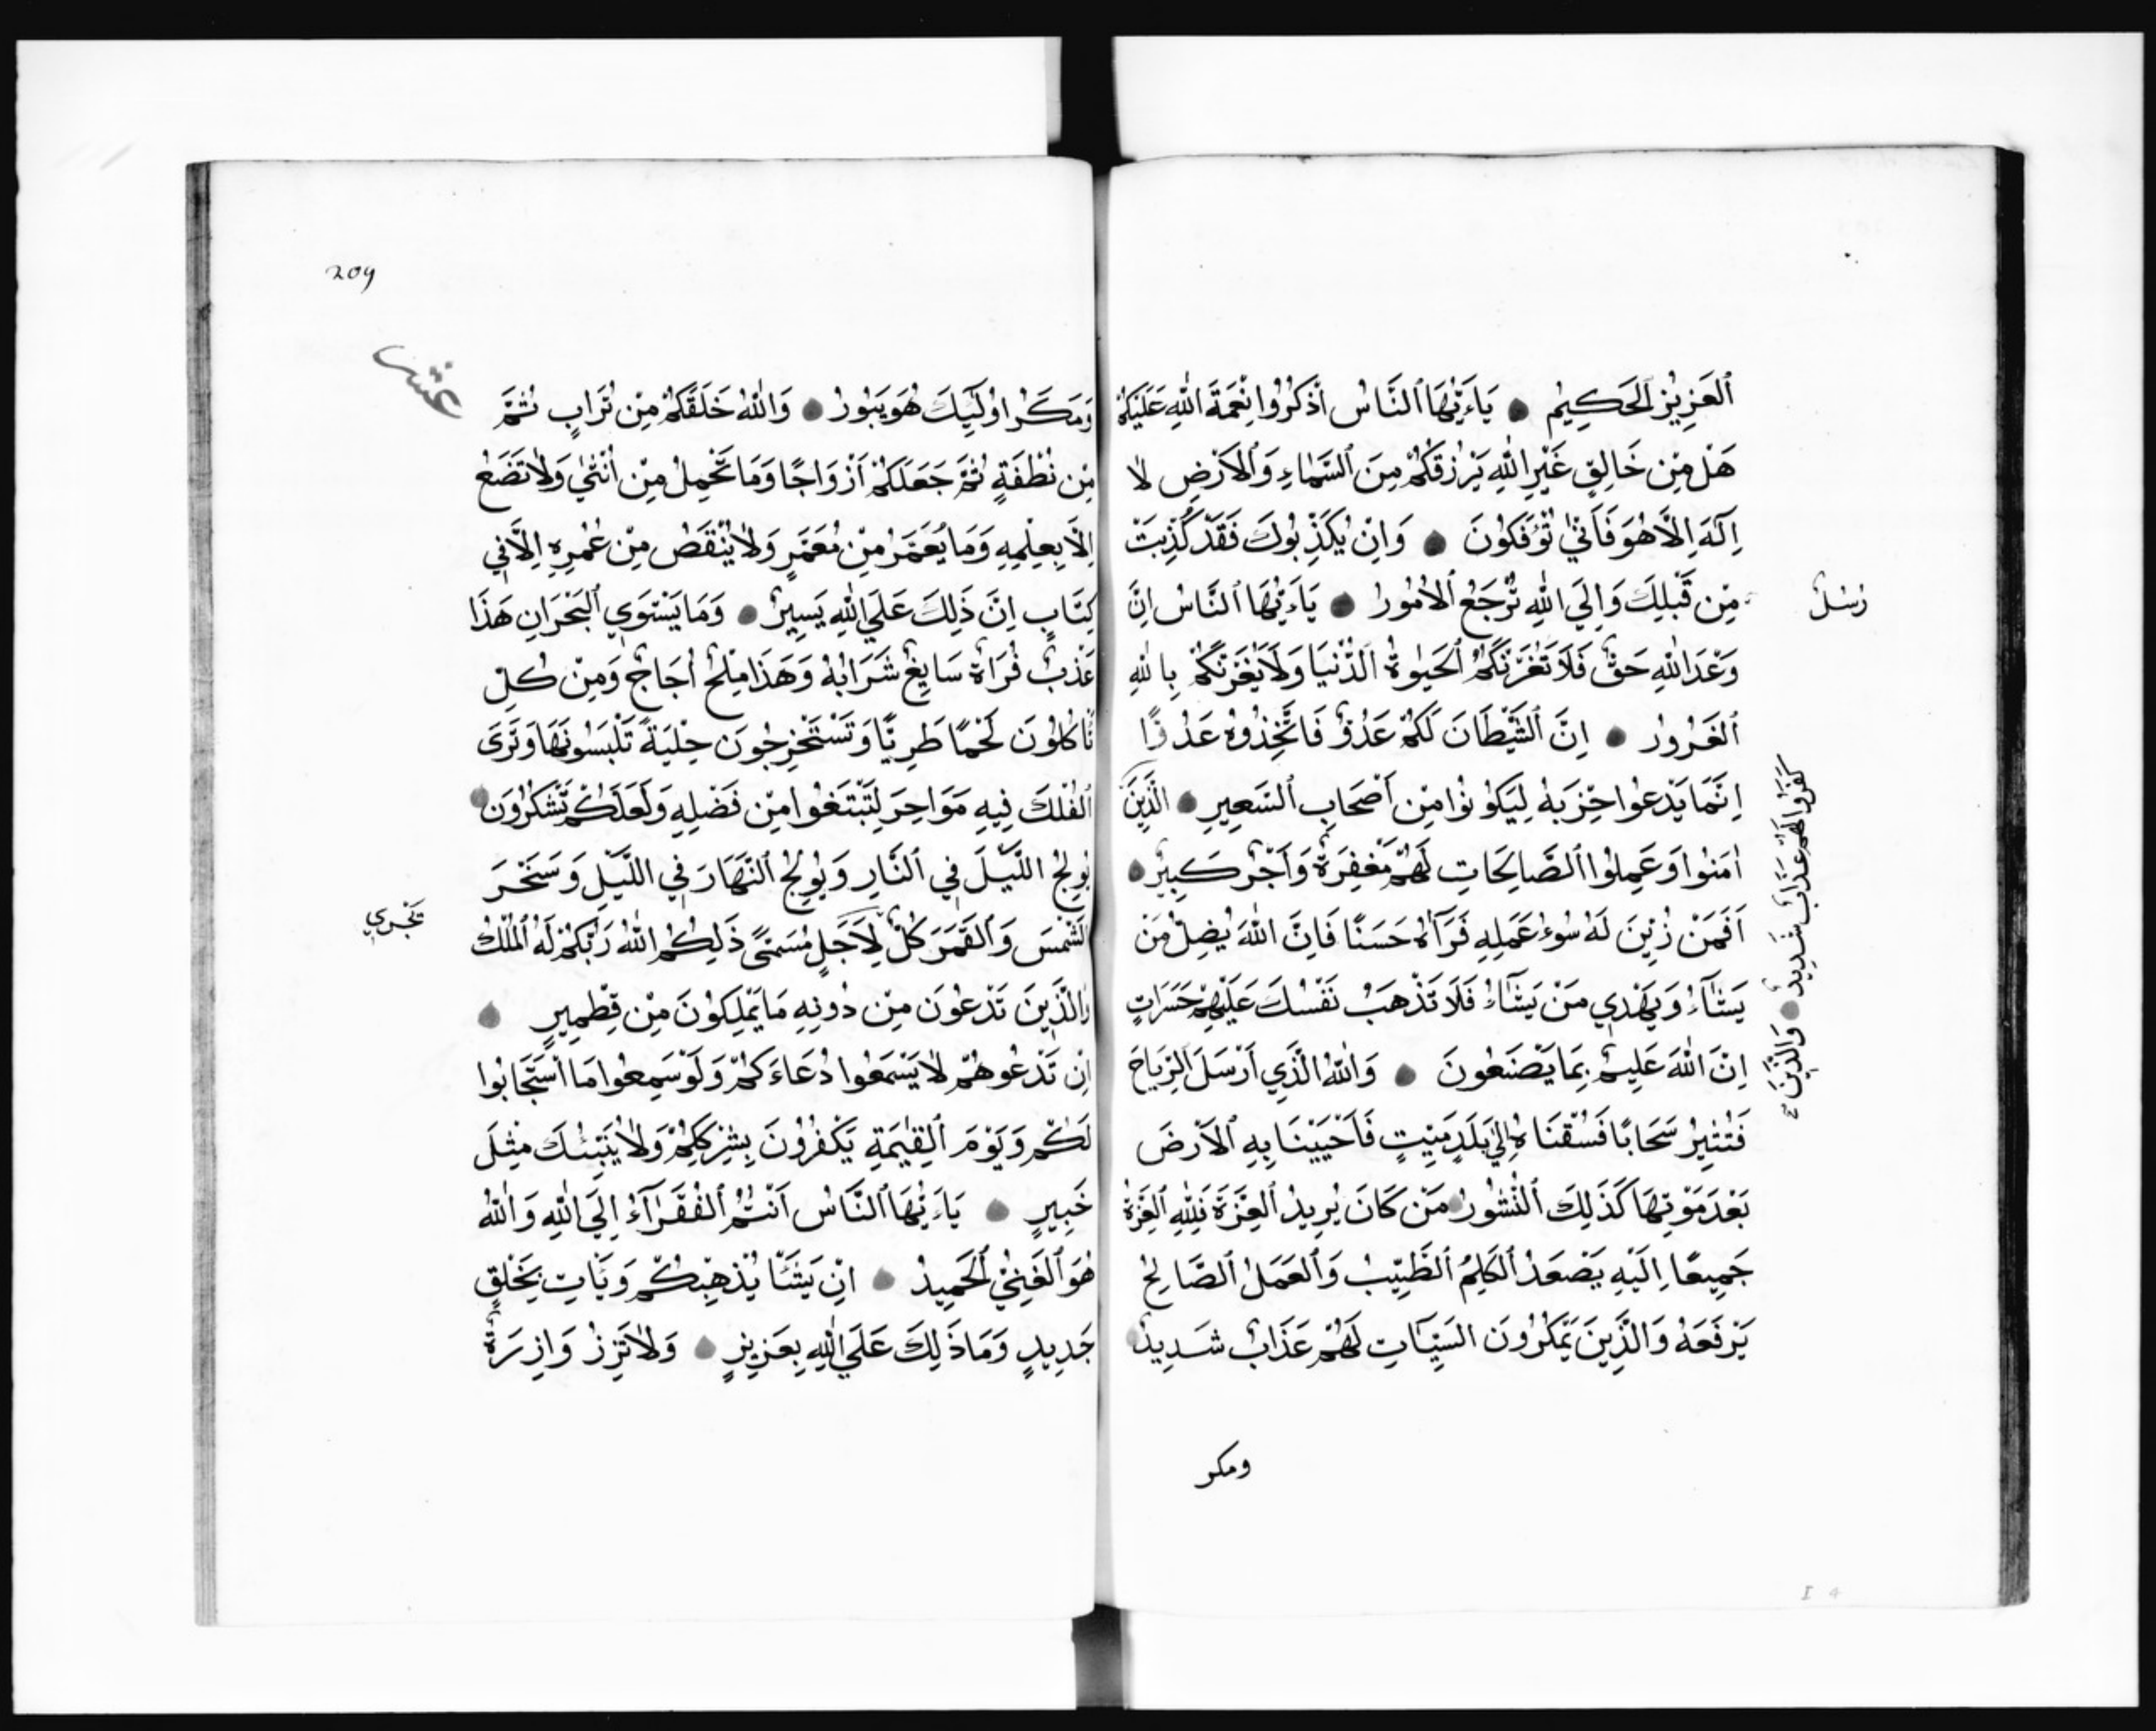 ٱلْعَزِيْزُ ٱلْحَكِيْمُ ● يَاءَيُّهَا ٱلنَّاسُ ٱذْكُرُوْا نِعْمَةَ اللّٰهِ عَلَيْكُمْ
هَلْ مِنْ خَالِقٍ غَيْرِ اللّٰهِ يَرْزُقُكُمْ مِنَ ٱلسَّمَاءِ وَٱلْاَرْضِ لَا
اِلٰهَ اِلَّا هُوَ فَاَنّٰي تُؤْفَكُوْنَ ● وَاِنْ يُكَذِّبُوْكَ فَقَدْ كُذِّبَتْ
رُسُلٌ
مِنْ قَبْلِكَ وَاِلَي اللّٰهِ تُرْجَعُ ٱلْاُمُوْرُ ● يَاءَيُّهَا ٱلنَّاسُ اِنَّ
وَعْدَ اللّٰهِ حَقٌّ فَلَا تَغُرَّنَّكُمُ ٱلْحَيٰوةُ ٱلدُّنْيَا وَلَا يَغُرَّنَّكُمْ بِاللّٰهِ
ٱلْغَرُوْرُ ● اِنَّ ٱلشَّيْطَانَ لَكُمْ عَدُوٌّ فَاتَّخِذُوْهُ عَدُوًّا
اِنَّمَا يَدْعُوْا حِزْبَهُ لِيَكُوْنُوْا مِنْ اَصْحَابِ ٱلسَّعِيْرِ ● الَّذِيْنَ
كَفَرُوْا لَهُمْ عَذَابٌ شَدِيْدٌ ● وَالَّذِيْنَ
اٰمَنُوْا وَعَمِلُوْا ٱلصَّالِحَاتِ لَهُمْ مَغْفِرَةٌ وَاَجْرٌ كَبِيْرٌ ●
اَفَمَنْ زُيِّنَ لَهُ سُوْءُ عَمَلِهِ فَرَآهُ حَسَنًا فَاِنَّ اللّٰهَ يُضِلُّ مَنْ
يَشَآءُ وَيَهْدِي مَنْ يَشَآءُ فَلَا تَذْهَبْ نَفْسُكَ عَلَيْهِمْ حَسَرَاتٍ
اِنَّ اللّٰهَ عَلِيْمٌ بِمَا يَصْنَعُوْنَ ● وَاللّٰهُ الَّذِي اَرْسَلَ ٱلرِّيَاحَ
فَتُثِيْرُ سَحَابًا فَسُقْنَاهُ اِلٰي بَلَدٍ مَيِّتٍ فَاَحْيَيْنَا بِهِ ٱلْاَرْضَ
بَعْدَ مَوْتِهَا كَذَلِكَ ٱلنُّشُوْرُ ● مَنْ كَانَ يُرِيْدُ ٱلْعِزَّةَ فَلِلّٰهِ ٱلْعِزَّةُ
جَمِيْعًا اِلَيْهِ يَصْعَدُ ٱلْكَلِمُ ٱلطَّيِّبُ وَٱلْعَمَلُ ٱلصَّالِحُ
يَرْفَعَهُ وَالَّذِيْنَ يَمْكُرُوْنَ السَّيِّـَٔاتِ لَهُمْ عَذَابٌ شَدِيْدٌ ●
ومكر
209
عشر
وَمَكَرُ اوْلَئِكَ هُوَ يَبُوْرُ ● وَاللّٰهُ خَلَقَكُمْ مِنْ تُرَابٍ ثُمَّ
مِنْ نُطْفَةٍ ثُمَّ جَعَلَكُمْ اَزْوَاجًا وَمَا تَحْمِلُ مِنْ اُنْثٰي وَلَا تَضَعُ
اِلَّا بِعِلْمِهِ وَمَا يُعَمَّرُ مِنْ مُعَمَّرٍ وَلَا يُنْقَصُ مِنْ عُمُرِهِ اِلَّا فِي
كِتَابٍ اِنَّ ذَلِكَ عَلَي اللّٰهِ يَسِيْرٌ ● وَمَا يَسْتَوِي ٱلْبَحْرَانِ هَذَا
عَذْبٌ فُرَاةٌ سَايِغٌ شَرَابُهُ وَهَذَا مِلْحٌ اُجَاجٌ وَمِنْ كُلٍّ
تَأْكُلُوْنَ لَحْمًا طَرِيًّا وَتَسْتَخْرِجُوْنَ حِلْيَةً تَلْبَسُوْنَهَا وَتَرَى
ٱلْفُلْكَ فِيْهِ مَوَاخِرَ لِتَبْتَغُوْا مِنْ فَضْلِهِ وَلَعَلَّكُمْ تَشْكُرُوْنَ ●
يُوْلِجُ اللَّيْلَ فِي ٱلنَّارِ وَيُوْلِجُ ٱلنَّهَارَ فِي اللَّيْلِ وَسَخَّرَ
ٱلشَّمْسَ وَٱلْقَمَرَ كُلٌّ لِاَجَلٍ مُسَمًّى ذَلِكُمُ اللّٰهُ رَبُّكُمْ لَهُ ٱلْمُلْكُ
تَجْرِي
وَالَّذِيْنَ تَدْعُوْنَ مِنْ دُوْنِهِ مَا يَمْلِكُوْنَ مِنْ قِطْمِيْرٍ ●
اِنْ تَدْعُوْهُمْ لَا يَسْمَعُوْا دُعَاءَكُمْ وَلَوْ سَمِعُوْا مَا ٱسْتَجَابُوْا
لَكُمْ وَيَوْمَ ٱلْقِيٰمَةِ يَكْفُرُوْنَ بِشِرْكِكُمْ وَلَا يُنَبِّئُكَ مِثْلَ
خَبِيْرٍ ● يَاءَيُّهَا ٱلنَّاسُ اَنْتُمُ ٱلْفُقَرَآءُ اِلَي اللّٰهِ وَاللّٰهُ
هُوَ ٱلْغَنِيُّ ٱلْحَمِيْدُ ● اِنْ يَشَأْ يُذْهِبْكُمْ وَيَأْتِ بِخَلْقٍ
جَدِيْدٍ وَمَا ذَلِكَ عَلَي اللّٰهِ بِعَزِيْزٍ ● وَلَا تَزِرُ وَازِرَةٌ